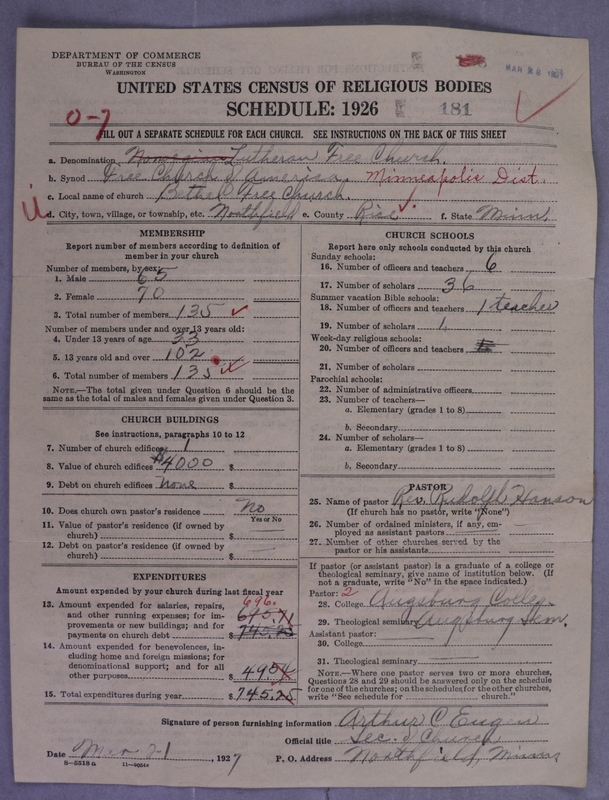 DEPARTMENT OF COMMERCE
BUREAU OF THE CENSUS
WASHINGTON
UNITED STATES CENSUS OF RELIGIOUS BODIES
SCHEDULE: 1926
181
0-7
FILL OUT A SEPARATE SCHEDULE FOR EACH CHURCH. SEE INSTRUCTIONS ON THE BACK OF THIS SHEET
a. Denomination Norwegian Lutheran Free Church.
b. Synod Free Church of America. Minneapolis Dist.
c. Local name of church Bethel Free Church.
d. City, town, village, or township, etc. Northfield e. County Rice f. State Minn.
MEMBERSHIP
Report number of members according to definition of
member in your church
Number of members, by sex:
1. Male 65
2. Female 70
3. Total number of members 135
Number of members under and over 13 years old:
4. Under 13 years of age 33
5. 13 years old and over 102
6. Total number of members 135
NOTE.—The total given under Question 6 should be the
same as the total of males and females given under Question 3.
CHURCH BUILDINGS
See instructions, paragraphs 10 to 12
7. Number of church edifices 1
8. Value of church edifices $4000 $
9. Debt on church edifices none $
10. Does church own pastor's residence No
Yes or No
11. Value of pastor's residence (if owned by
church) $
12. Debt on pastor's residence (if owned by
church) $
EXPENDITURES
Amount expended by your church during last fiscal year
13. Amount expended for salaries, repairs,
and other running expenses; for im-
provements or new buildings; and for
payments on church debt $ 696.
14. Amount expended for benevolences, in-
cluding home and foreign missions; for
denominational support; and for all
other purposes $
15. Total expenditures during year $ 745.25
CHURCH SCHOOLS
Report here only schools conducted by this church
Sunday schools:
16. Number of officers and teachers 6
17. Number of scholars 36
Summer vacation Bible schools:
18. Number of officers and teachers 1 teacher
19. Number of scholars 1
Week-day religious schools:
20. Number of officers and teachers
21. Number of scholars
Parochial schools:
22. Number of administrative officers
23. Number of teachers—
a. Elementary (grades 1 to 8)
b. Secondary
24. Number of scholars—
a. Elementary (grades 1 to 8)
b. Secondary
PASTOR
25. Name of pastor Rev. Rudolph Hanson
(If church has no pastor, write "None")
26. Number of ordained ministers, if any, em-
ployed as assistant pastors
27. Number of other churches served by the
pastor or his assistants
If pastor (or assistant pastor) is a graduate of a college or
theological seminary, give name of institution below. (If
not a graduate, write "No" in the space indicated.)
Pastor: 2
28. College Augsburg College.
29. Theological seminary Augsburg Sem.
Assistant pastor:
30. College
31. Theological seminary
NOTE.—Where one pastor serves two or more churches,
Questions 28 and 29 should be answered only on the schedule
for one of the churches; on the schedules for the other churches,
write "See schedule for church."
Signature of person furnishing information Arthur C
Official title Sec. of Church
Date Mar 21, 1927 P. O. Address Northfield, Minn
8-5518a